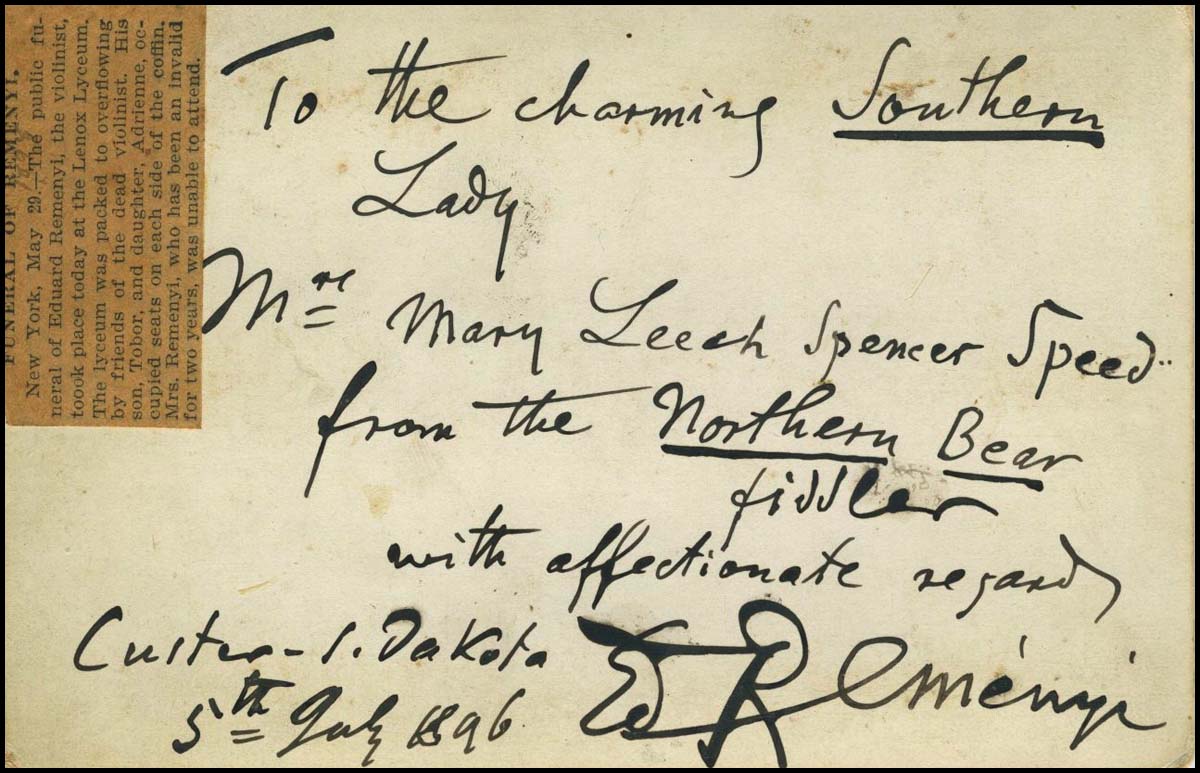 FUNERAL OF REMENYI.
New York, May 29.—The public fu-
neral of Eduard Remenyi, the violinist,
toook place today at the Lenox Lyceum.
The lyceum was packed to overflowing
by friends of the dead violinist. His
son, Tobor, and daughter, Adrienne, oc-
cupied seats on each side of the coffin.
Mrs. Remenyi, who has been an invalid
for two years, was unable to attend.
To the charming Southern
Lady
Mre Mary Leech Spencer Speed
from the Northern Bear
fiddler
with affectionate regards
Custer - S. Dakota
5th July 1896
Ed Reményi